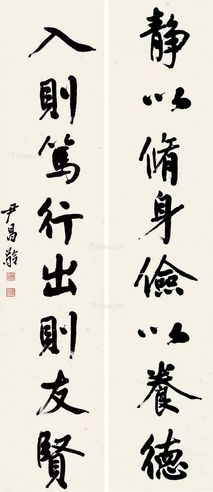 静以脩身儉以養德
入則篤行出則友賢
尹昌齡